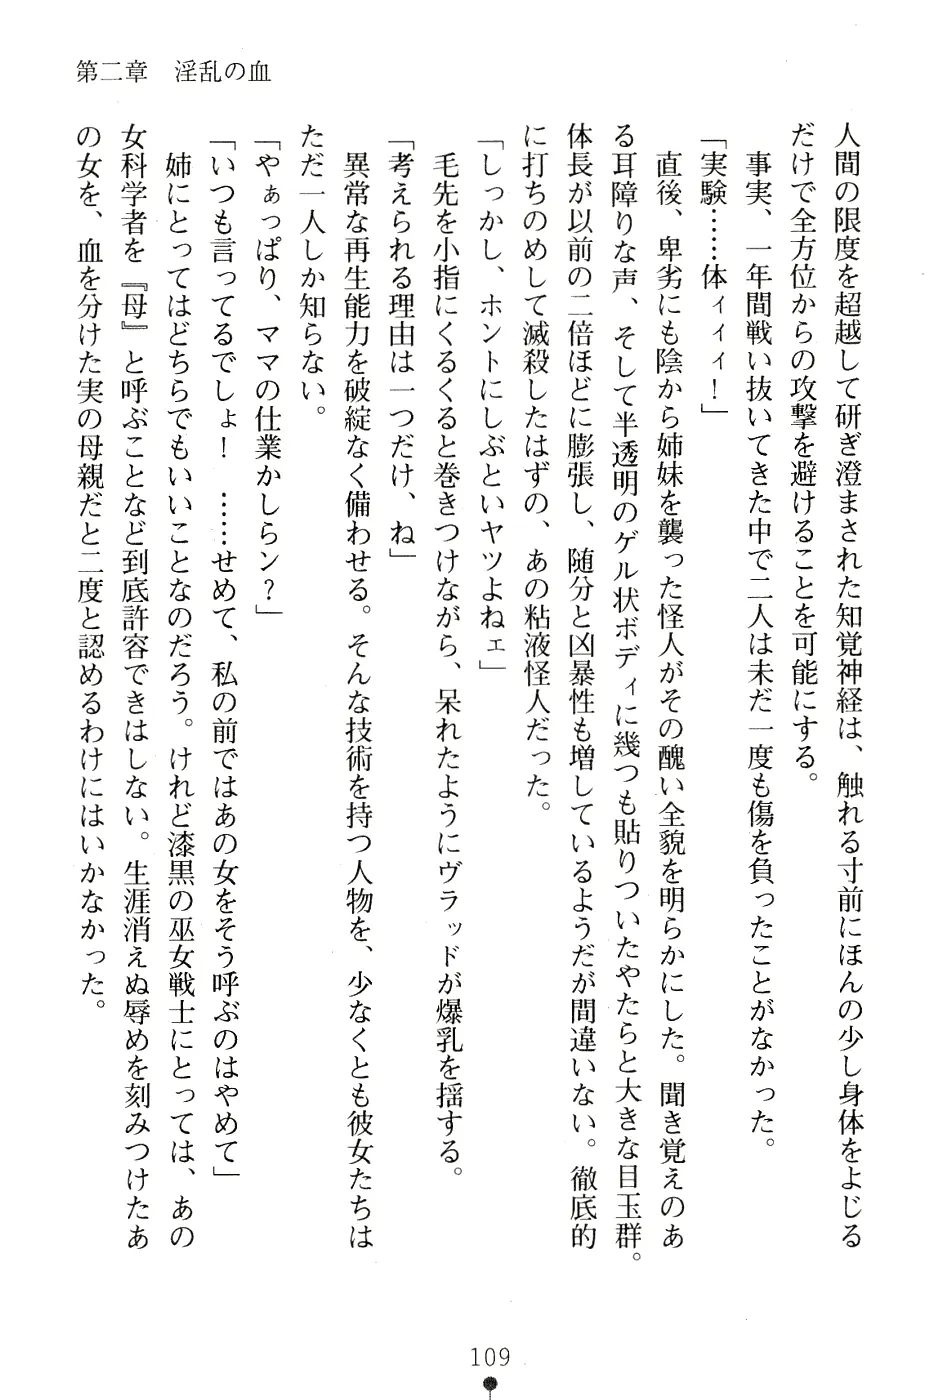 第二章　淫乱の血
人間の限度を超越して研ぎ澄まされた知覚神経は、触れる寸前にほんの少し身体をよじる
だけで全方位からの攻撃を避けることを可能にする。
　事実、一年間戦い抜いてきた中で二人は未だ一度も傷を負ったことがなかった。
「実験……体ィィィ！」
　直後、卑劣にも陰から姉妹を襲った怪人がその醜い全貌を明らかにした。聞き覚えのあ
る耳障りな声、そして半透明のゲル状ボディに幾つも貼りついたやたらと大きな目玉群。
体長が以前の二倍ほどに膨張し、随分と凶暴性も増しているようだが間違いない。徹底的
に打ちのめして滅殺したはずの、あの粘液怪人だった。
「しっかし、ホントにしぶといヤツよねェ」
　毛先を小指にくるくると巻きつけながら、呆れたようにヴラッドが爆乳を揺する。
「考えられる理由は一つだけ、ね」
　異常な再生能力を破綻なく備わせる。そんな技術を持つ人物を、少なくとも彼女たちは
ただ一人しか知らない。
「やぁっぱり、ママの仕業かしらン？」
「いつも言ってるでしょ！　……せめて、私の前ではあの女をそう呼ぶのはやめて」
　姉にとってはどちらでもいいことなのだろう。けれど漆黒の巫女戦士にとっては、あの
女科学者を『母』と呼ぶことなど到底許容できはしない。生涯消えぬ辱めを刻みつけたあ
の女を、血を分けた実の母親だと二度と認めるわけにはいかなかった。
109